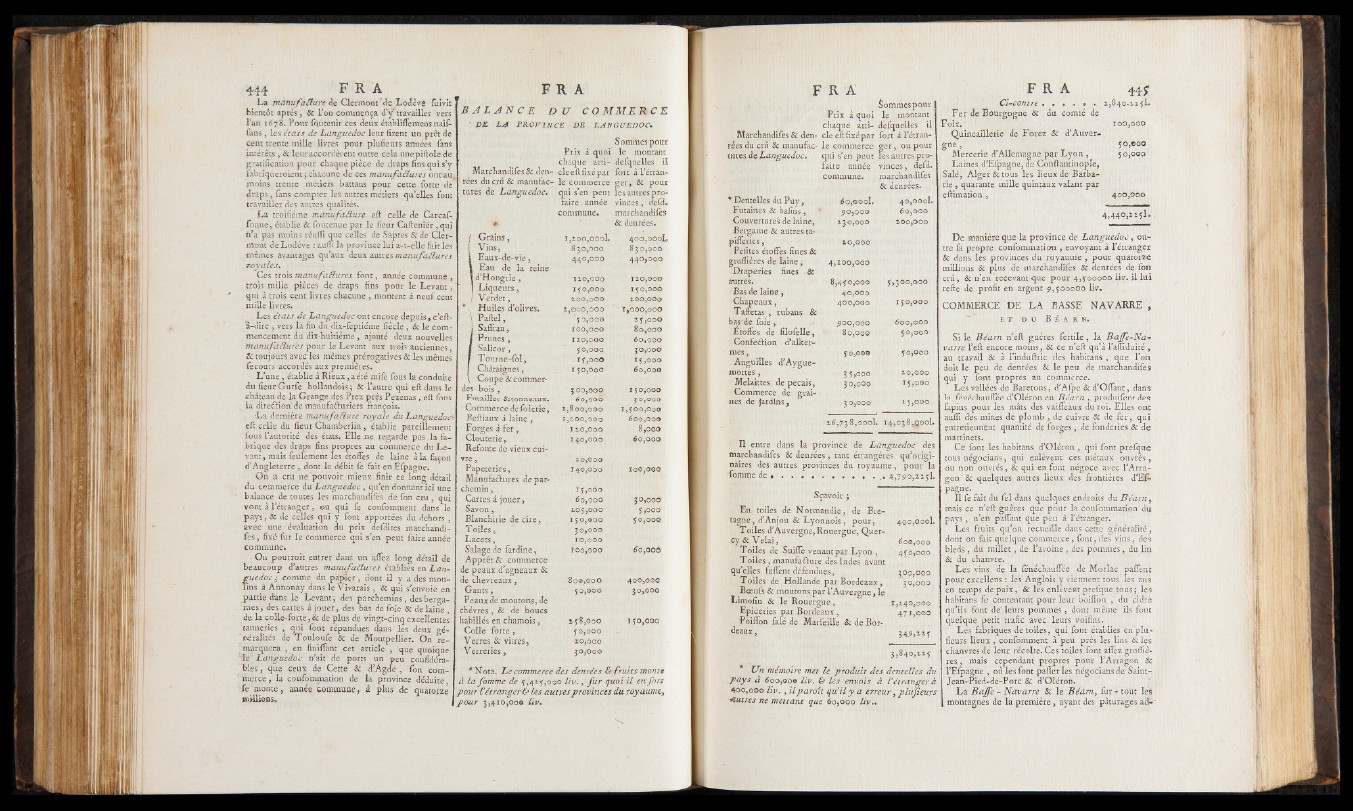 444 F R A
La manufacture de Clermont de Lodève suivit
bientôt après, & l'on commença d'y travailler vers
l'an 1678. Pour soutenir ces deux établissemens naif-
sans, les états de Languedoc leur firent un prêt de
cent trente mille livres pour plusieurs années sans
intérêts, & leur accordèrent outre cela une pistole de
gratification pour chaque pièce de draps fins qui s'y
fabriqueroient ; chacune de ces manufactures ont au
moins trente métiers battans pour cette sorte de
draps, sans compter les autres métiers qu'elles font
travailler des autres qualités.
La troisième manufacture est celle de Carcas-
sonne, établie & soutenue par le sieur Castenier, qui
n'a pas moins réussi que celles de Saptes & de Cler-
mont de Lodève : aussi la province lui a-t-elle fait les
mêmes avantages qu'aux deux autres manufactures
royales.
Ces trois manufactures font, année commune,
trois mille pièces de draps fins pour le Levant,
qui à trois cent livres chacune, montent à neuf cent
mille livres.
Les états de Languedoc ont encore depuis, c'est-
à-dire, vers la fin du dix-septième siècle, & le com-
mencement du dix-huitième, ajouté deux nouvelles
manufactures pour le Levant aux trois anciennes,
& toujours avec les mêmes prérogatives & les mêmes
secours accordés aux premières.
L'une, établie à Rieux, a été mise sous la conduite
du sieur Gurse hollandois ; & l'autre qui est dans le
château de la Grange des Prez près Pezenas, est sous
la direction de manufacturiers françois.
La dernière manufacture royale du Languedoc
est celle du sieur Chamberlin, établie pareillement
sous l'autorité des états. Elle ne regarde pas la fa-
brique des draps fins propres au commerce du Le-
vant, mais seulement les étoffes de laine à la façon
d'Angleterre, dont le débit se fait en Espagne.
On a cru ne pouvoir mieux finir ce long détail
du commerce du Languedoc, qu'en donnant ici une
balance de toutes les marchandises de son cru, qui
vont à l'étranger, ou qui se consomment dans le
pays, & de celles qui y sont apportées du dehors,
avec une évaluation du prix desdites marchandi-
ses, fixé sur le commerce qui s'en peut faire année
commune.
On pourroit entrer dans un assez long détail de
beaucoup d'autres manufactures établies en Lan-
guedoc ; comme du papier, dont il y a des mou-
lins à Annonay dans le Vivarais, & qui s'envoie en
partie dans le Levant ; des parchemins, des berga-
mes, des cartes à jouer, des bas de soie & de laine,
de la colle-forte, & de plus de vingt-cinq excellentes
tanneries, qui sont répandues dans les deux gé-
néralités de Toulouse & de Montpellier. On re-
marquera, en finissant cet article, que quoique
le Languedoc n'ait de ports un peu considéra-
bles, que ceux de Cette & d'Agde, son com-
merce, la consommation de la province déduite,
se monte, année commune, à plus de quatorze
millions.
F R A
BALANCE DU COMMERCE
DE LA PROVINCE DE LANGUEDOC.
Sommes pour
Prix à quoi le montant
chaque arti- desquelles il
Marchandises & den- cle est fixé par sort à l'étran-
rées du crû & manufac- le commerce ger, & pour
tures de Languedoc. qui s'en peut les autres pro-
faire année vinces, desd.
commune. marchandises
& denrées.
Grains, 1,200,000l. 400,000l.
Vins, 830,000 830,000
Eaux-de-vie, 440,000 440,000
Eau de la reine
d'Hongrie, 120,000 120,000
Liqueurs, 150,000 150,000
Verdet, 200,000 200,000
* Huiles d'olives. 2,000,000 1,000,000
Pastel, 50,000 25,000
Saffran, 100,000 80,000
Prunes, 120,000 60,000
Salicor, 50,000 30,000
Tourne-sol, 15,000 15,000
Châtaignes, 150,000 60,000
Coupe & commer-
des bois, 300,000 150,000
Futailles & tonneaux. 60,000 30,000
Commerce de soierie, 1,800,000 1,500,000
Bestiaux à laine, 1,000,000 600,000
Forges à fer, 120,000 8,000
Clouterie, 140,000 60,000
Refonte de vieux cui-
vre, 20,000
Papeteries, 140,000 100,000
Manufactures de par-
chemin, 15,000
Cartes à jouer, 60,000 30,000
Savon, 205,000 5,000
Blanchirie de cire, 150,000 50,000
Toiles, 30,000
Lacets, 10,000
Salage de sardine, 100,000 60,000
Apprêt & commerce
de peaux d'agneaux &
de chevreaux, 800,000 400,000
Gants, 50,000 30,000
Peaux de moutons, de
chévres, & de boucs
habillés en chamois, 258,000 150,000
Colle forte, 50,000
Verres & vitres, 20,000
Verreries, 30,000
* Nota. Le commerce des denrées & fruits monte
à la somme de 5,425,000 liv., sur quoi il en sort
pour l'étranger & les autres provinces du royaume,
pour 3,410,000 liv.
F R A
Sommes pour
Prix à quoi le montant
chaque arti- desquelles il
Marchandises & den- cle est fixé par sort à l'étran-
rées du crû & manufac- le commerce ger, ou pour
tures de Languedoc. qui s'en peut les autres pro-
faire année vinces, desd.
commune. marchandises
& denrées.
* Dentelles du Puy, 60,000l. 40,000l.
Futaines & basins, 90,000 60,000
Couvertures de laine, 230,000 200,000
Bergame & autres ta-
pisseries, 20,000
Petites étoffes fines &
grossières de laine, 4,100,000
Draperies fines &
autres. 8,450,000 5,300,000
Bas de laine, 40,000
Chapeaux, 400,000 150,000
Taffetas, rubans &
bas de soie, 900,000 600,000
Etoffes de filoselle, 80,000 50,000
Confection d'alker-
mes, 50,000 50,000
Anguilles d'Aygue-
mortes, 35,000 20,000
Melaittes de pecais, 30,000 15,000
Commerce de grai-
nes de jardins, 30,000 15,000
26,738,000l. 14,038,000l.
Il entre dans la province de Languedoc des
marchandises & denrées, tant étrangères qu'origi-
naires des autres provinces du royaume, pour la
somme de . . . . . . . . . . . 4,790,225l.
Sçavoir ;
En toiles de Normandie, de Bre-
tagne, d'Anjou & Lyonnois, pour, 400,000l.
Toiles d'Auvergne, Rouergue, Quer-
cy & Velai, 600,000
Toiles de Suisse venant par Lyon, 450,000
Toiles, manufacture des Indes avant
qu'elles fussent défendues, 300,000
Toiles de Hollande par Bordeaux, 30,000
Bœufs & moutons par l'Auvergne, le
Limosin & le Rouergue, 1,240,000
Epiceries par Bordeaux, 471,000
Poisson salé de Marseille & de Bor-
deaux, 349,225
3,840,225
* Un mémoire met le produit des dentelles du
pays à 600,000 liv. & les envois à l'étranger à
400,000 liv., il paroît qu'il y a erreur, plusieurs
autres ne mettant que 60,000 liv..
F R A 445
Ci-contre . . . . . . 3,840,225l.
Fer de Bourgogne & du comté de
Foix. 100,000
Quincaillerie de Forez & d'Auver-
gne, 50,000
Mercerie d'Allemagne par Lyon, 50,000
Laines d'Espagne, de Constantinople,
Salé, Alger & tous les lieux de Barba-
rie, quarante mille quintaux valant par
estimation, 400,000
4,440,225l.
De manière que la province de Languedoc, ou-
tre sa propre consommation, envoyant à l'étranger
& dans les provinces du royaume, pour quatorze
millions & plus de marchandises & denrées de son
crû, & n'en recevant que pour 4,500000 liv. il lui
reste de profit en argent 9,500000 liv.
COMMERCE DE LA BASSE NAVARRE,
ET DU BÉARN.
Si le Béarn n'est guères fertile, la Basse-Na-
varre l'est encore moins, & ce n'est qu'à l'assiduité,
au travail & à l'industrie des habitans, que l'on
doit le peu de denrées & le peu de marchandises
qui y sont propres au commerce.
Les vallées de Baretons, d'Aspe & d'Ossant, dans
la sénéchaussée d'Oléron en Béarn, produisent des
sapins pour les mâts des vaisseaux du roi. Elles ont
aussi des mines de plomb, de cuivre & de fer, qui
entretiennent quantité de forges, de fonderies & de
martinets.
Ce sont les habitans d'Oléron, qui sont presque
tous négocians, qui enlèvent ces métaux ouvrés,
ou non ouvrés, & qui en font négoce avec l'Arra-
gon & quelques autres lieux des frontières d'Es-
pagne.
Il se fait du sel dans quelques endroits du Béarn,
mais ce n'est guères que pour la consommation du
pays, n'en passant que peu à l'étranger.
Les fruits qu'on recueille dans cette généralité,
dont on fait quelque commerce, sont, des vins, des
bleds, du millet, de l'avoine, des pommes, du lin
& du chanvre.
Les vins de la sénéchaussée de Morlac passent
pour excellens : les Anglois y viennent tous les ans
en temps de paix, & les enlèvent presque tous ; les
habitans se contentant pour leur boisson, du cidre
qu'ils font de leurs pommes, dont même ils font
quelque petit trafic avec leurs voisins.
Les fabriques de toiles, qui sont établies en plu-
sieurs lieux, consomment à peu près les lins & les
chanvres de leur récolte. Ces toiles sont assez grossiè-
res, mais cependant propres pour l'Arragon &
l'Espagne, où les font passer les négocians de Saint-
Jean-Pied-de-Port & d'Oléron.
La Basse-Navarre & le Béarn, sur-tout les
montagnes de la première, ayant des pâturages ad-